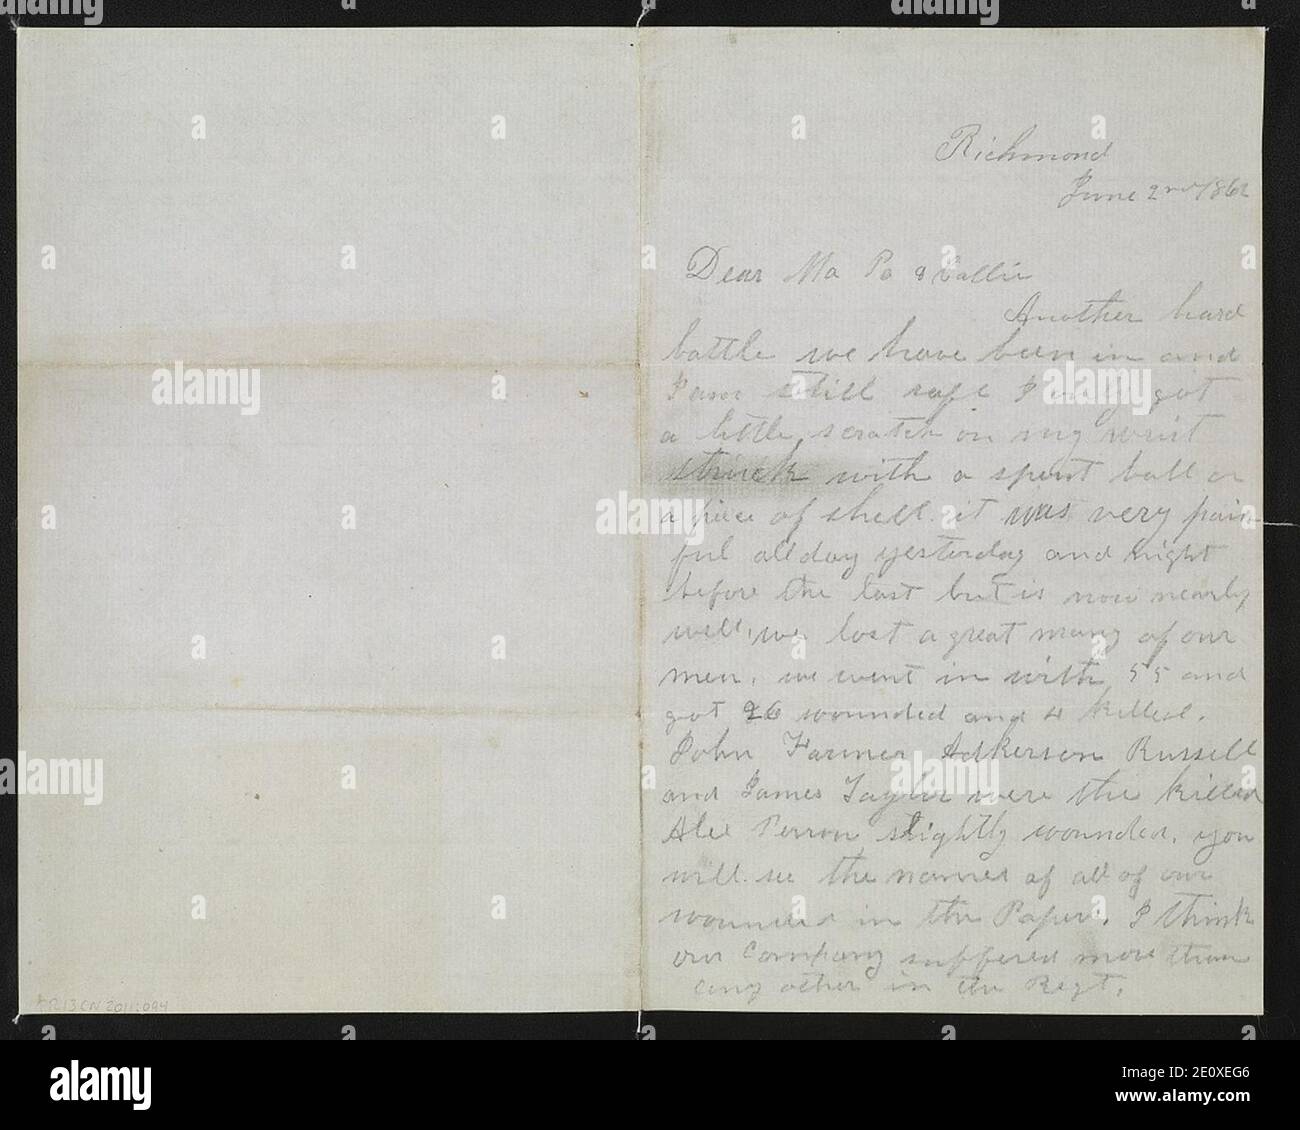 Richmond
June 2nd 1862
Dear Ma Pa & Callie
Another hard
battle we have been in and
I am still safe I only got
a little scratch on my wrist
struck with a spent ball or
a piece of shell. it was very pain
ful all day yesterday and night
before the last but is now nearly
well, we lost a great many of our
men. we went in with 55 and
got 26 wounded and 4 killed.
John Farmer Adkerson Russell
and James Taylor were the killed
Alex Perrow slightly wounded. you
will see the names of all of our
wounded in the Papers. I think
our Company suffered more than
any other in the Regt.
2011:094
alamy
Image ID: 2E0XEG6
www.alamy.com